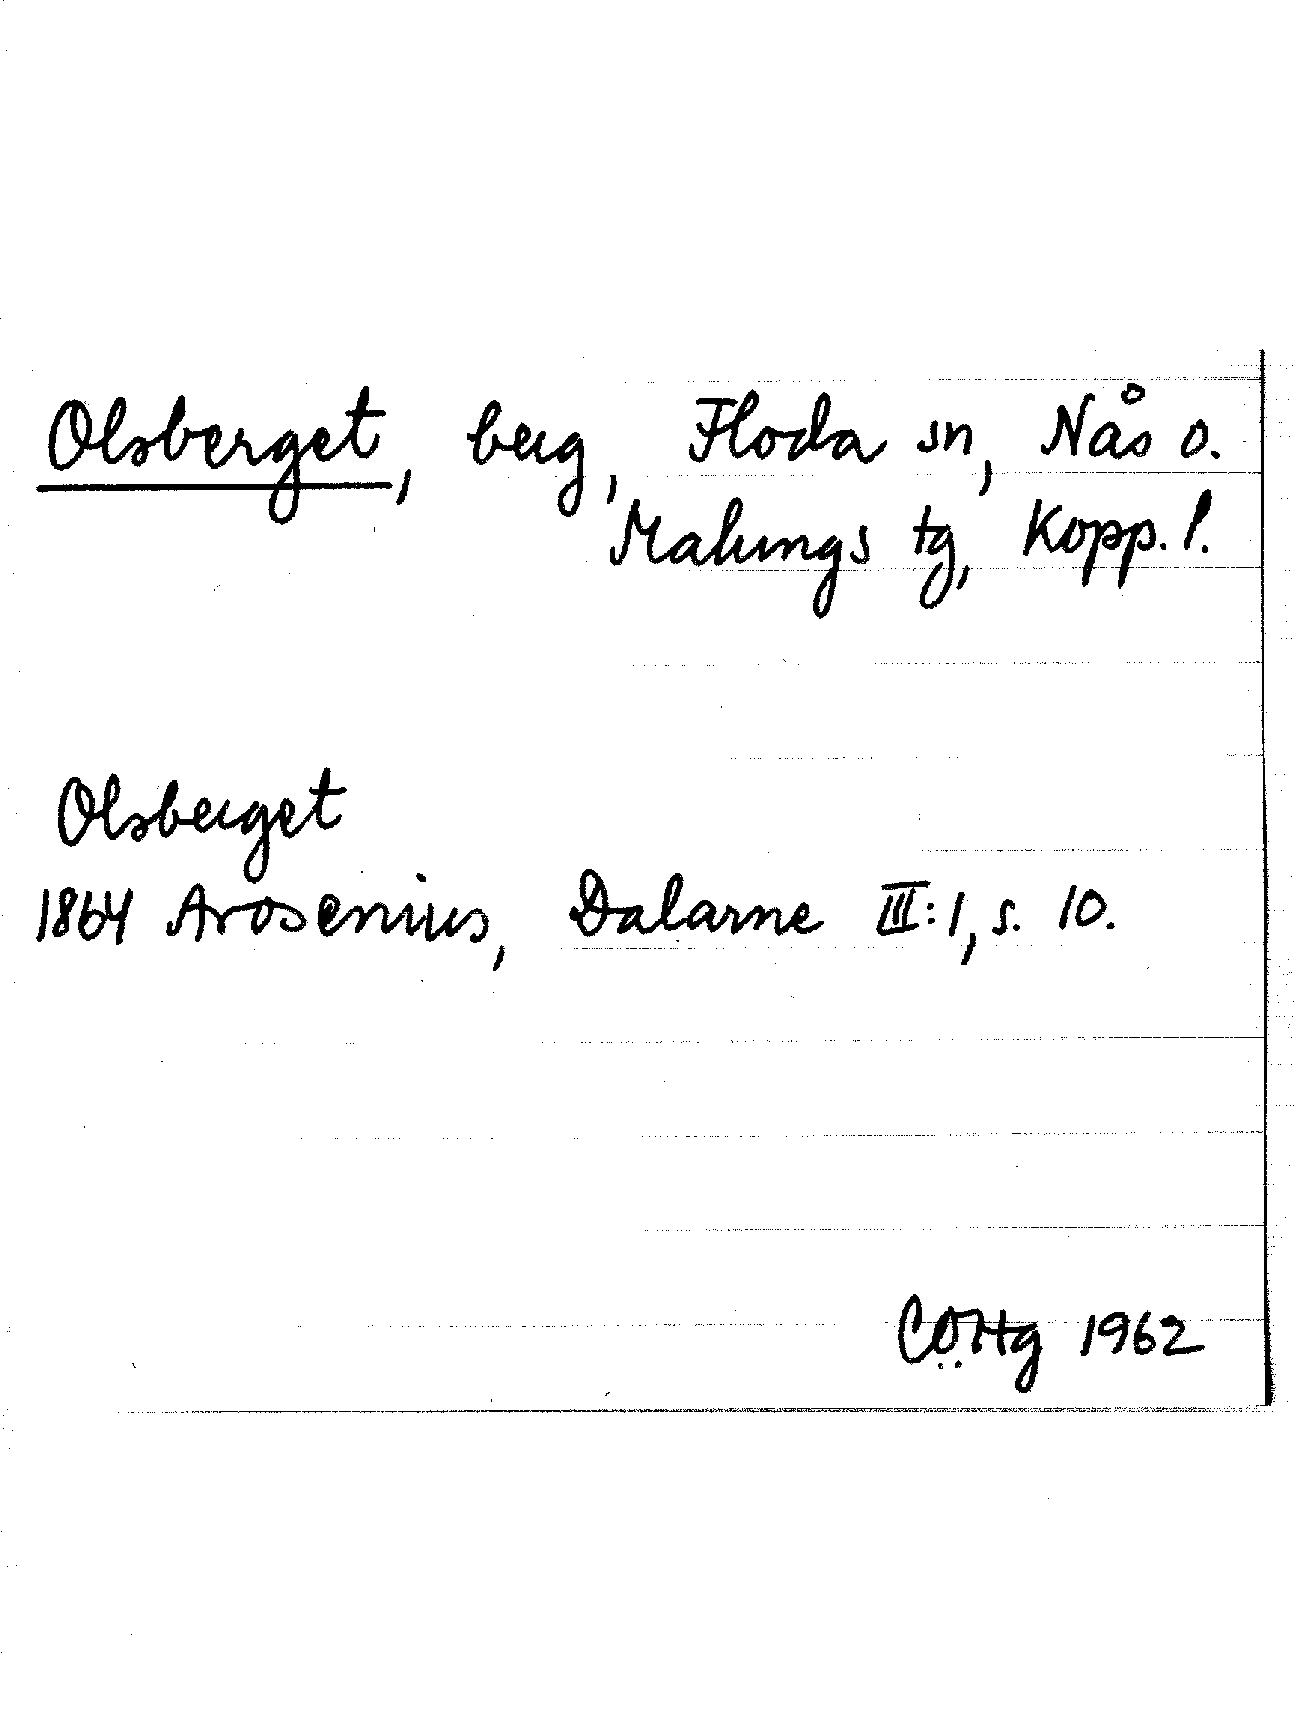 Olsberget, berg, Floda sn, Nås o.
Malungs tg, Kopp. l.
Olsberget
1864 Arosenius, Dalarne III:1, s. 10.
CÖHg 1962